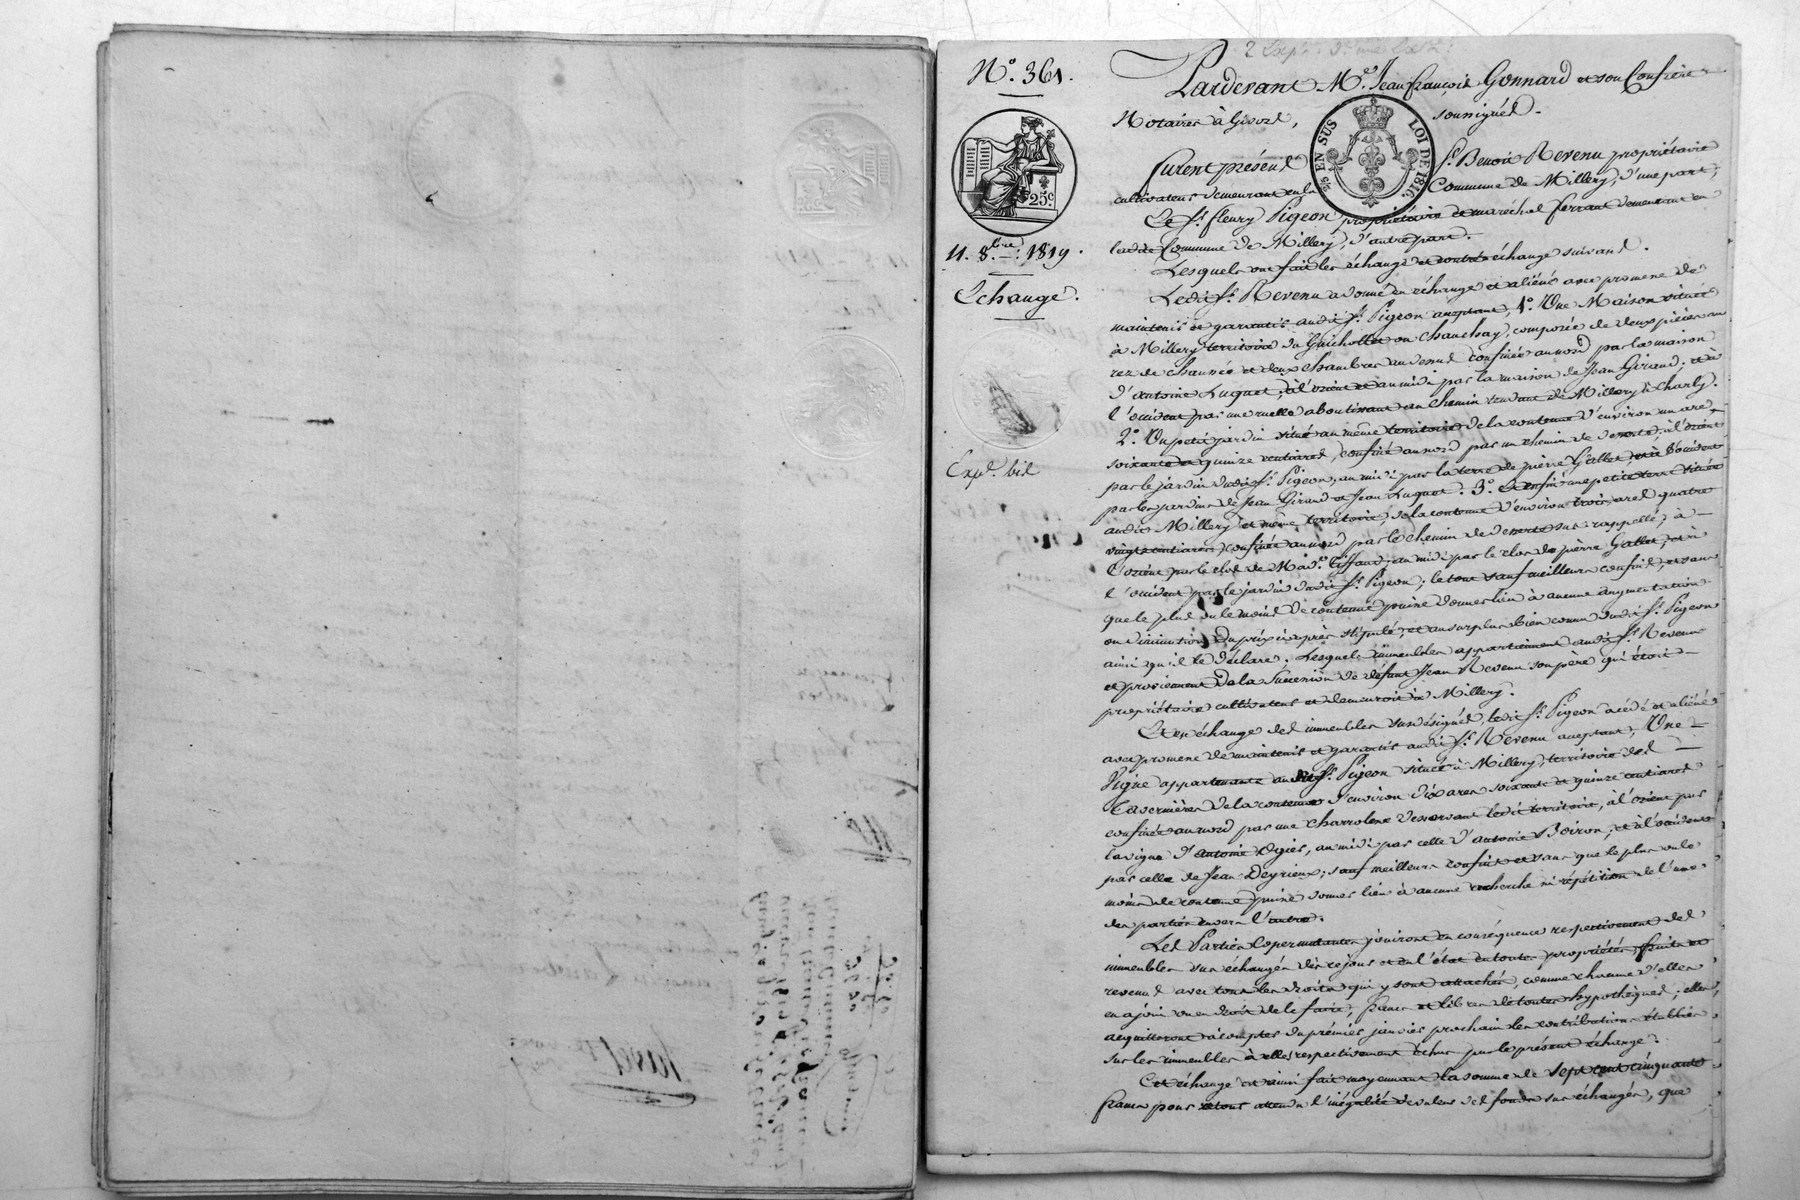 N.° 361.
25.c
11. 8.bre 1819.
Echange.
Exp.é bis
Pardevant M.es Jean françois Gonnard et son Confrère
Notaires à Givors, soussignés.
5/6 EN SUS LOI DE 1816.
furent présens S.r Benoit Revenu propriétaire
cultivateur demeurant en la Commune de Millery, d'une part;
Le S.r fleury Pigeon propriétaire et maréchal ferrant demeurant en
ladite Commune de Millery, d'autre part.
Lesquels ont fait les échange et contré échange suivans.
Ledit S.r Revenu a donné en échange et aliéné avec promesse de
maintenir et garantir audit S.r Pigeon acceptant, 1.° Une Maison située
à Millery territoire du Guichollet ou Chanchay, composée de deux pièces au
rez de chaussée et deux chambres au dessus confinée au nord par la maison
d'antoine Luquet, à l'orient et au midi par la maison de Jean Giraud, et à
l'occident par une ruelle aboutissant au chemin tendant de Millery à Charly.
2.° Un petit jardin situé au même territoire de la contenue d'environ un are
soixante et quinze centiares, confiné au nord par un chemin de desserte, à l'orient
par le jardin dudit S.r Pigeon, au midi par la terre de pierre Gallet, et à l'occident
par les jardins de Jean Giraud et Jean Luquet. 3.° Et enfin une petite terre située
audit Millery et même territoire, de la contenue d'environ trois ares quatre
vingts centiares, confinée au nord par le chemin de desserte sus rappellé, à
l'orient par le clos de Mad.e Tiffaud, au midi par le clos de pierre Gallet, et à
l'occident par le jardin dudit S.r Pigeon; le tout sauf meilleurs confins, et sans
que le plus ou le moins de contenue puisse donner lieu à aucune augmentation
ou diminution du prix ci après stipulé, et au surplus bien connu dudit S.r Pigeon
ainsi qu'il le déclare. Lesquels immeubles appartiennent audit S.r Revenu
et proviennent de la Succession de défunt Jean Revenu son père qui étoit
propriétaire cultivateur et demeuroit à Millery.
Et en échange des immeubles sus désignés, ledit S.r Pigeon a cédé et aliéné
avec promesse de maintenir et garantir audit S.r Revenu acceptant, Une
Vigne appartenante audit S.r Pigeon située à Millery, territoire des
Tavernières de la contenue d'environ dix ares soixante et quinze centiares
confinée au nord par une charrolerie desservant ledit territoire, à l'orient par
la vigne d'antoine Ogier, au midi par celle d'antoine Boiron, et à l'occident
par celle de Jean Deyrieux; sauf meilleurs confins et sans que le plus ou le
moins de contenue puisse donner lieu à aucune recherche ni répétition de l'une
des parties envers l'autre.
Les Parties Copermutantes jouiront en conséquence respectivement des
immeubles sus échangés dès ce jour et en l'état en toutes propriétés, fruits et
revenus avec tous les droits qui y sont attachés, comme chacune d'elles
en a joui ou eu droit de le faire, francs et libres de toutes hypothèques; elles
acquitteront à compter du premier janvier prochain les contributions établies
sur les immeubles à elles respectivement échus par le présent échange.
Cet échange est ainsi fait moyennant la somme de sept cent cinquante
francs pour retour attendu l'inégalité de valeur des fonds sus échangés, que